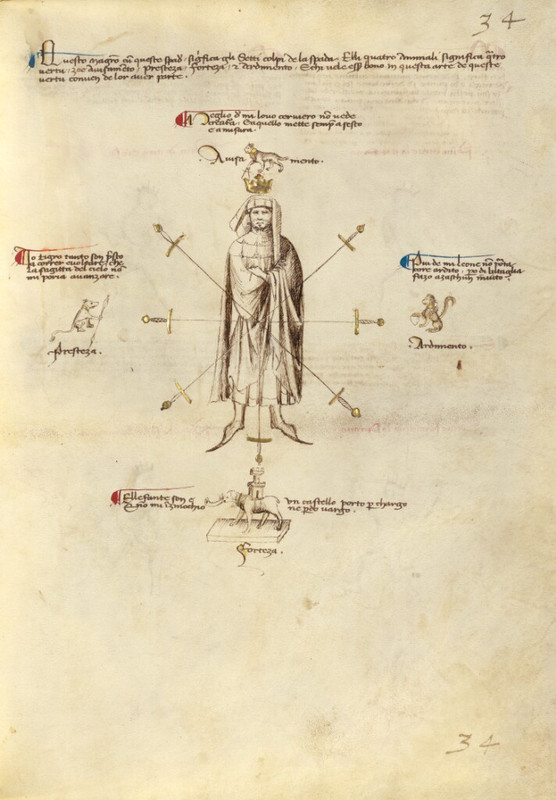 34
Questo magistro cum queste spade significa gli Setti colpi de la spada. Elli quatro animali significa quatro
vertu, zoe avisamento, presteza, forteza, & ardimento. E chi vole esser bono in questa arte de queste
vertu conven de lor aver parte.
Meglio de mi lovo cerviero non vede
creatura. E aquello mette sempre a sesto
e a misura.
Avisa mento.
Io tigro tanto son presto
a correr e voltare che
la sagitta del cielo non
mi poria avanzare.
Presteza.
Piu de mi leone non porta
core ardito, pero di bataglia
fazo a zaschun invito.
Ardimento.
Ellefante son e un castello porto per chargo
E non mi inzenochio ne perdo vargo.
Forteza.
34